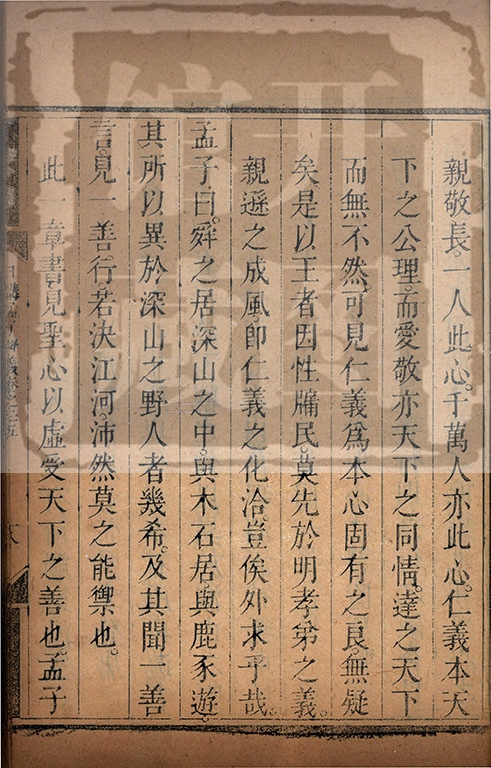 親敬長。一人此心。千萬人亦此心。仁義本天
下之公理。而愛敬亦天下之同情。達之天下
而無不然。可見仁義爲本心固有之良。無疑
矣。是以王者因性牖民。莫先於明孝弟之義。
親遜之成風。卽仁義之化洽。豈俟外求乎哉。
孟子曰。舜之居深山之中。與木石居。與鹿豕遊。
其所以異於深山之野人者幾希。及其聞一善
言。見一善行。若決江河。沛然莫之能禦也。
此一章書見聖心以虛受天下之善也。孟子